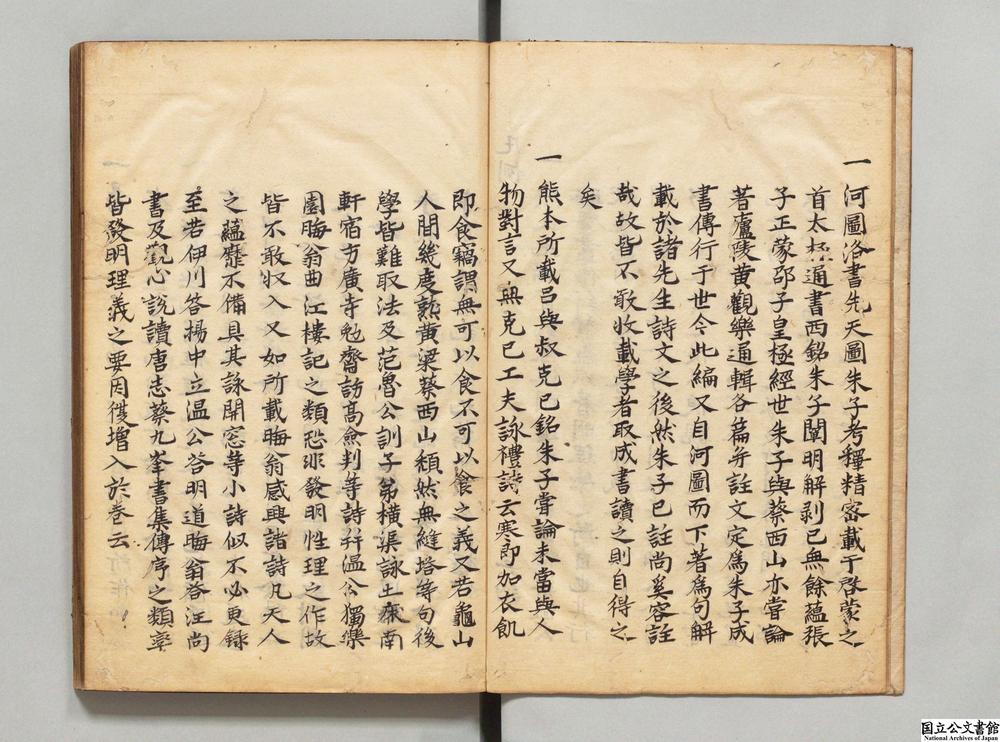 一 河圖洛書先天圖朱子考釋精密載于啓蒙之
首太極通書西銘朱子闡明解剥已無餘蘊張
子正蒙邵子皇極經世朱子與蔡西山亦嘗論
著廬陵黄觀樂通輯各篇并註文定爲朱子成
書傳行于世今此編又自河圖而下著爲句解
載於諸先生詩文之後然朱子已註尚奚容註
哉故皆不敢收載學者取成書讀之則自得之
矣
一 熊本所載吕與叔克己銘朱子嘗論未當與人
物對言又無克已工夫詠禮詩云寒即加衣飢
即食竊謂無可以食不可以食之義又若龜山
人間幾度熟黄梁蔡西山頹然無縫塔等句後
學皆難取法及范魯公訓子弟横渠詠土床南
軒宿方廣寺勉齋訪髙僉判等詩并温公獨樂
園晦翁曲江樓記之類恐非發明性理之作故
皆不敢收入又如所載晦翁感興諸詩凡天人
之藴靡不備具其詠開窓等小詩似不必更録
至若伊川答楊中立温公答明道晦翁答汪尚
書及觀心説讀唐志蔡九峯書集傳序之類率
皆發明理義之要因復增入於卷云
国立公文書館
National Archives of Japan